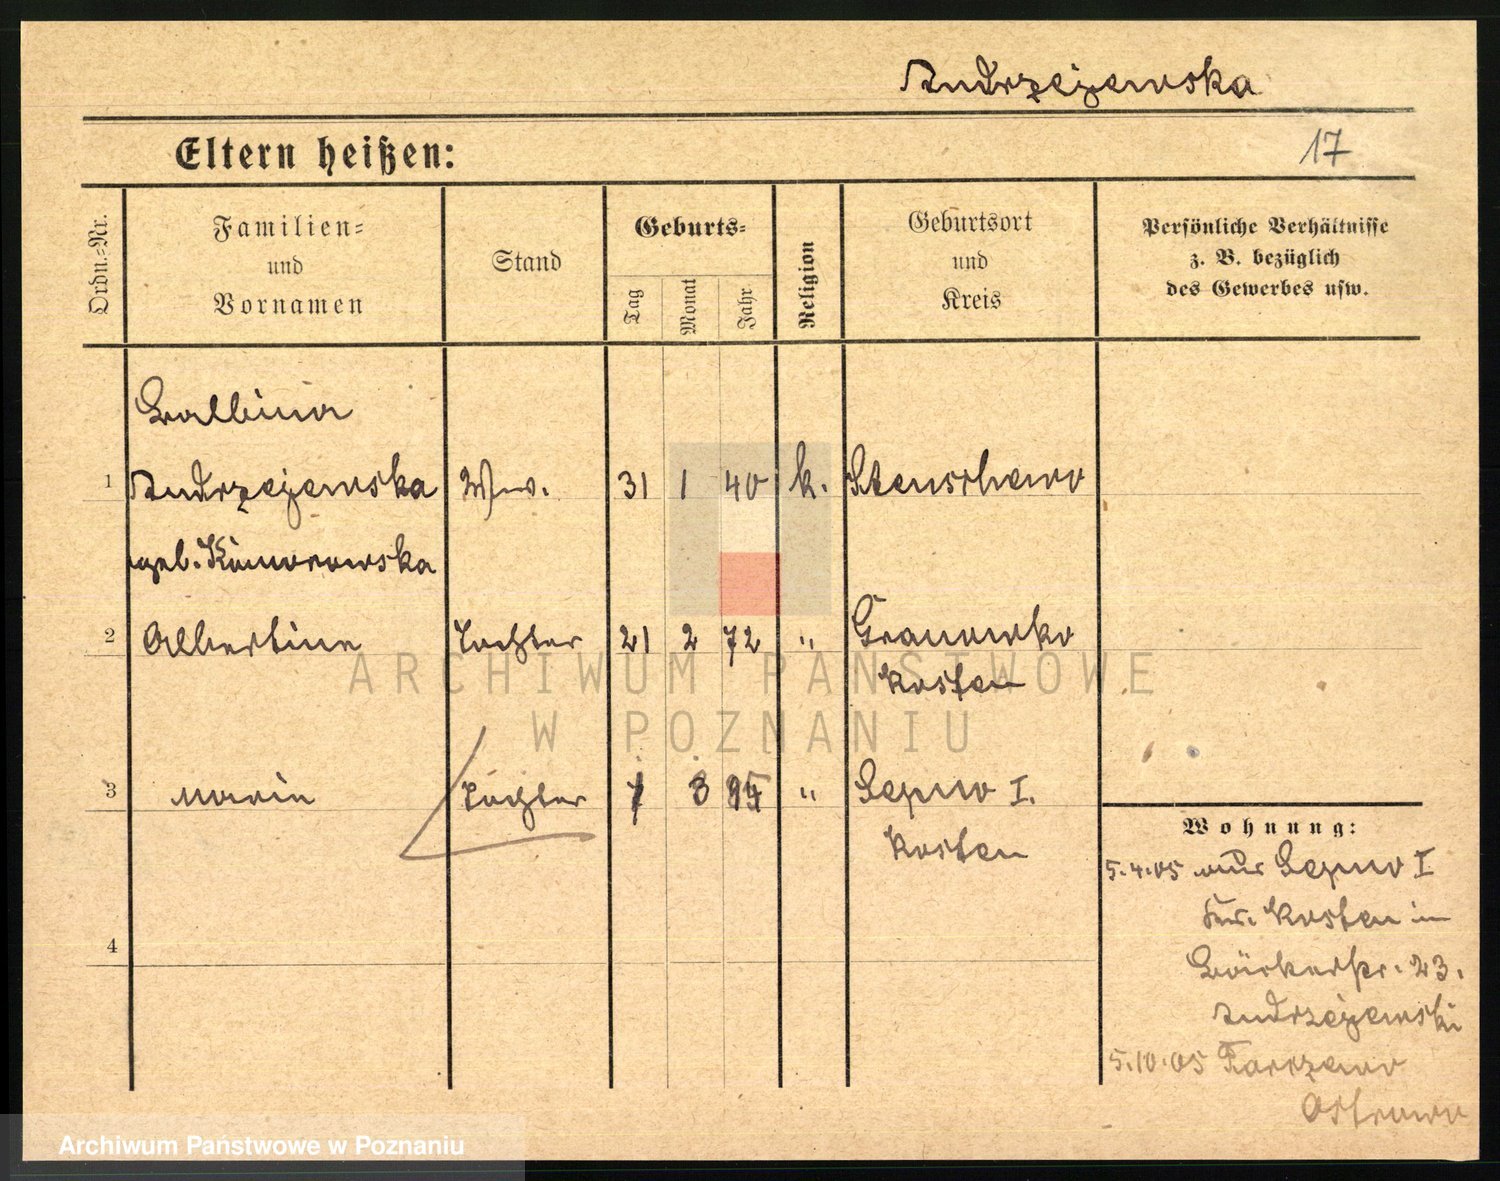 Andrzejewska
Eltern heißen:
17
Ordn.=Nr.
Familien=
und
Vornamen
Stand
Geburts=
Tag
Monat
Jahr
Religion
Geburtsort
und
Kreis
Persönliche Verhältnisse
z. B. bezüglich
des Gewerbes usw.
Balbina
1 Andrzejewska Ww. 31 1 40 k. Stenschewo
geb. Komorowska
2 Albertine Tochter 21 2 72 " Granowko
Kosten
3 Marie Tochter 1 3 95 " Sepno I.
Kosten
4
Wohnung:
5.4.05 aus Sepno I
Krs. Kosten in
Bäckerstr. 23.
Andrzejewski
5.10.05
Ostrowo
ARCHIWUM PAŃSTWOWE
W POZNANIU
Archiwum Państwowe w Poznaniu